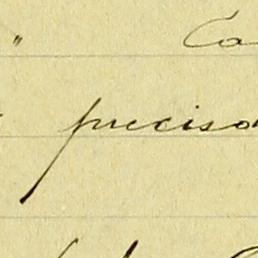 " Ca
preciso